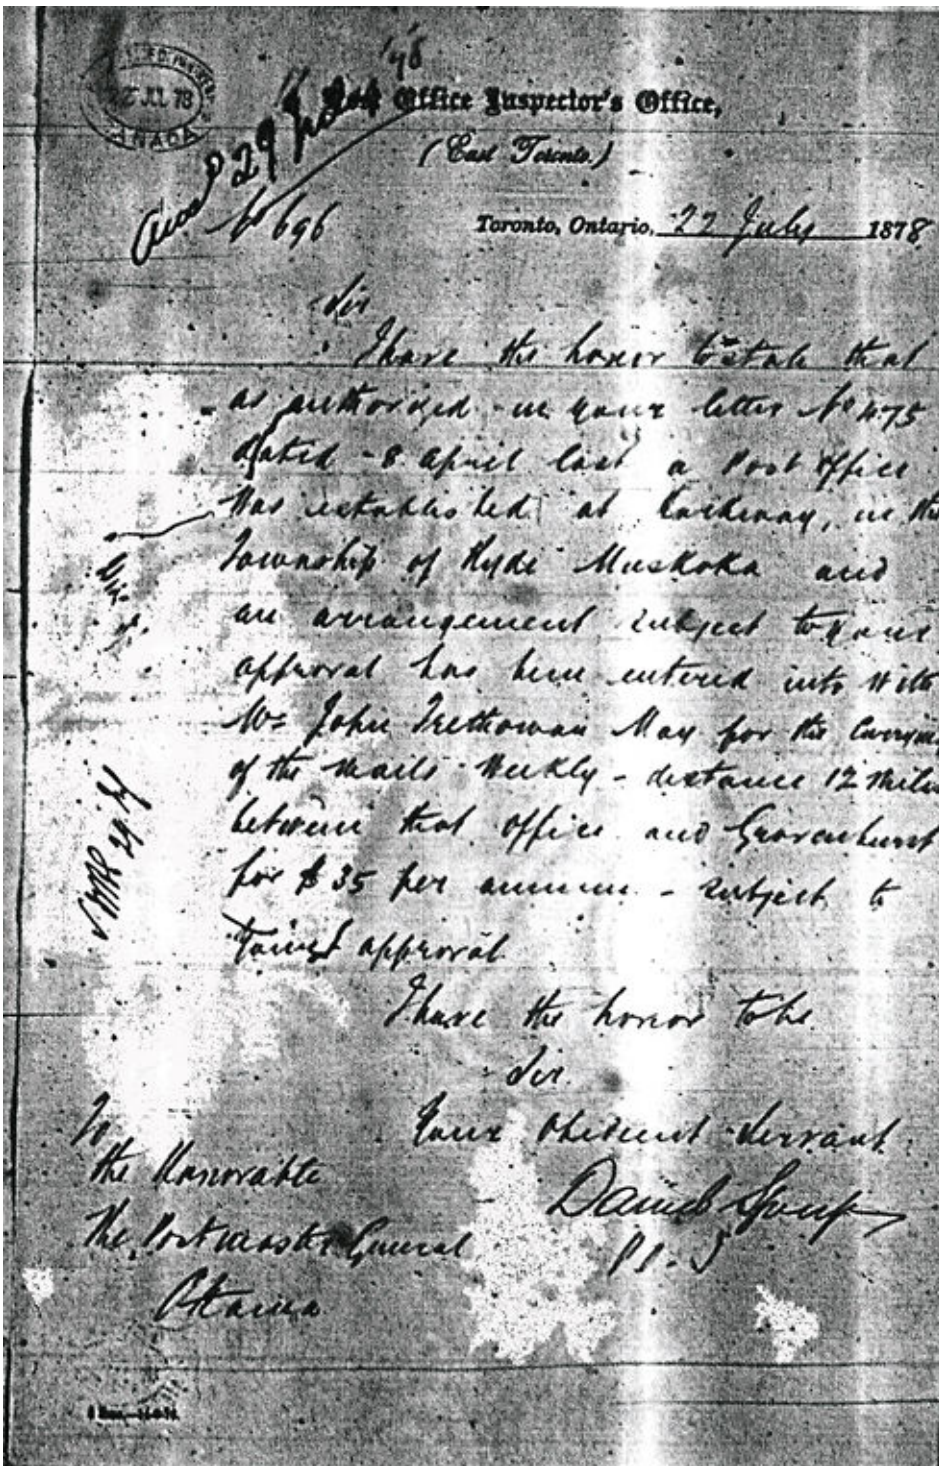 27 JUL 78
CANADA
29 July '78
No 696
Post Office Inspector's Office,
(East Toronto.)
Toronto, Ontario, 22 July 1878
Sir
I have the honor to state that
as authorized in your letter No 475
dated 8 April last a Post Office
was established at in the
Township of Ryde Muskoka and
an arrangement subject to your
approval has been entered into with
Mr John Trethowan May for the
of the mails weekly - distance 12 miles
between that office and Gravenhurst
for $35 per annum - subject to
approval
I have the honor to be
Sir
Your Obedient Servant
Daniel Spry
P.O.I
To
the Honorable
the Postmaster General
Ottawa